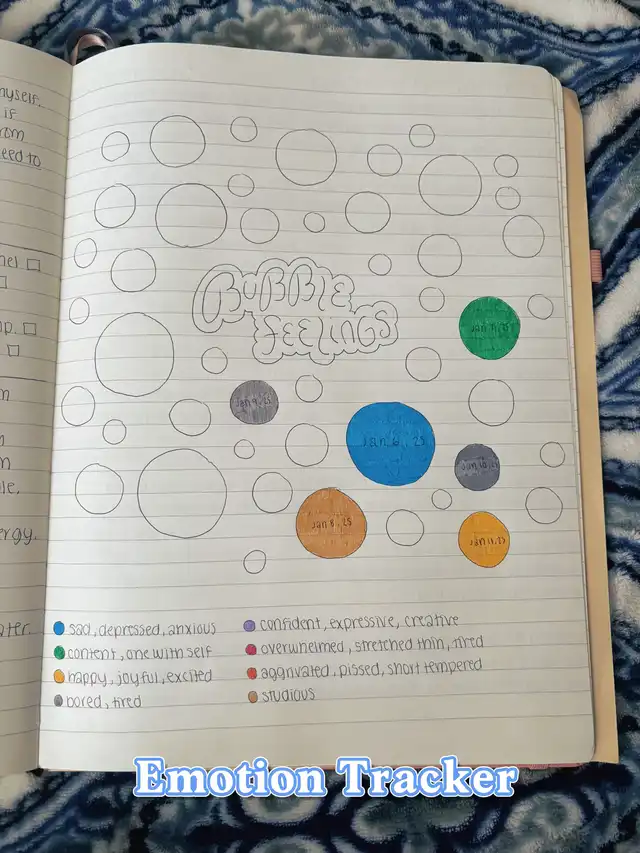 myself.
is
rom
eed to
BUBBLE
FEELINGS
Jan 9, 25
Jan 6, 25
Jan 8, 25
sad, depressed, anxious
content, one with self
happy, joyful, excited
bored, tired
confident, expressive, creative
overwhelmed, stretched thin, tired
aggrivated, pissed, short tempered
studious
ergy.
ater.
Emotion Tracker